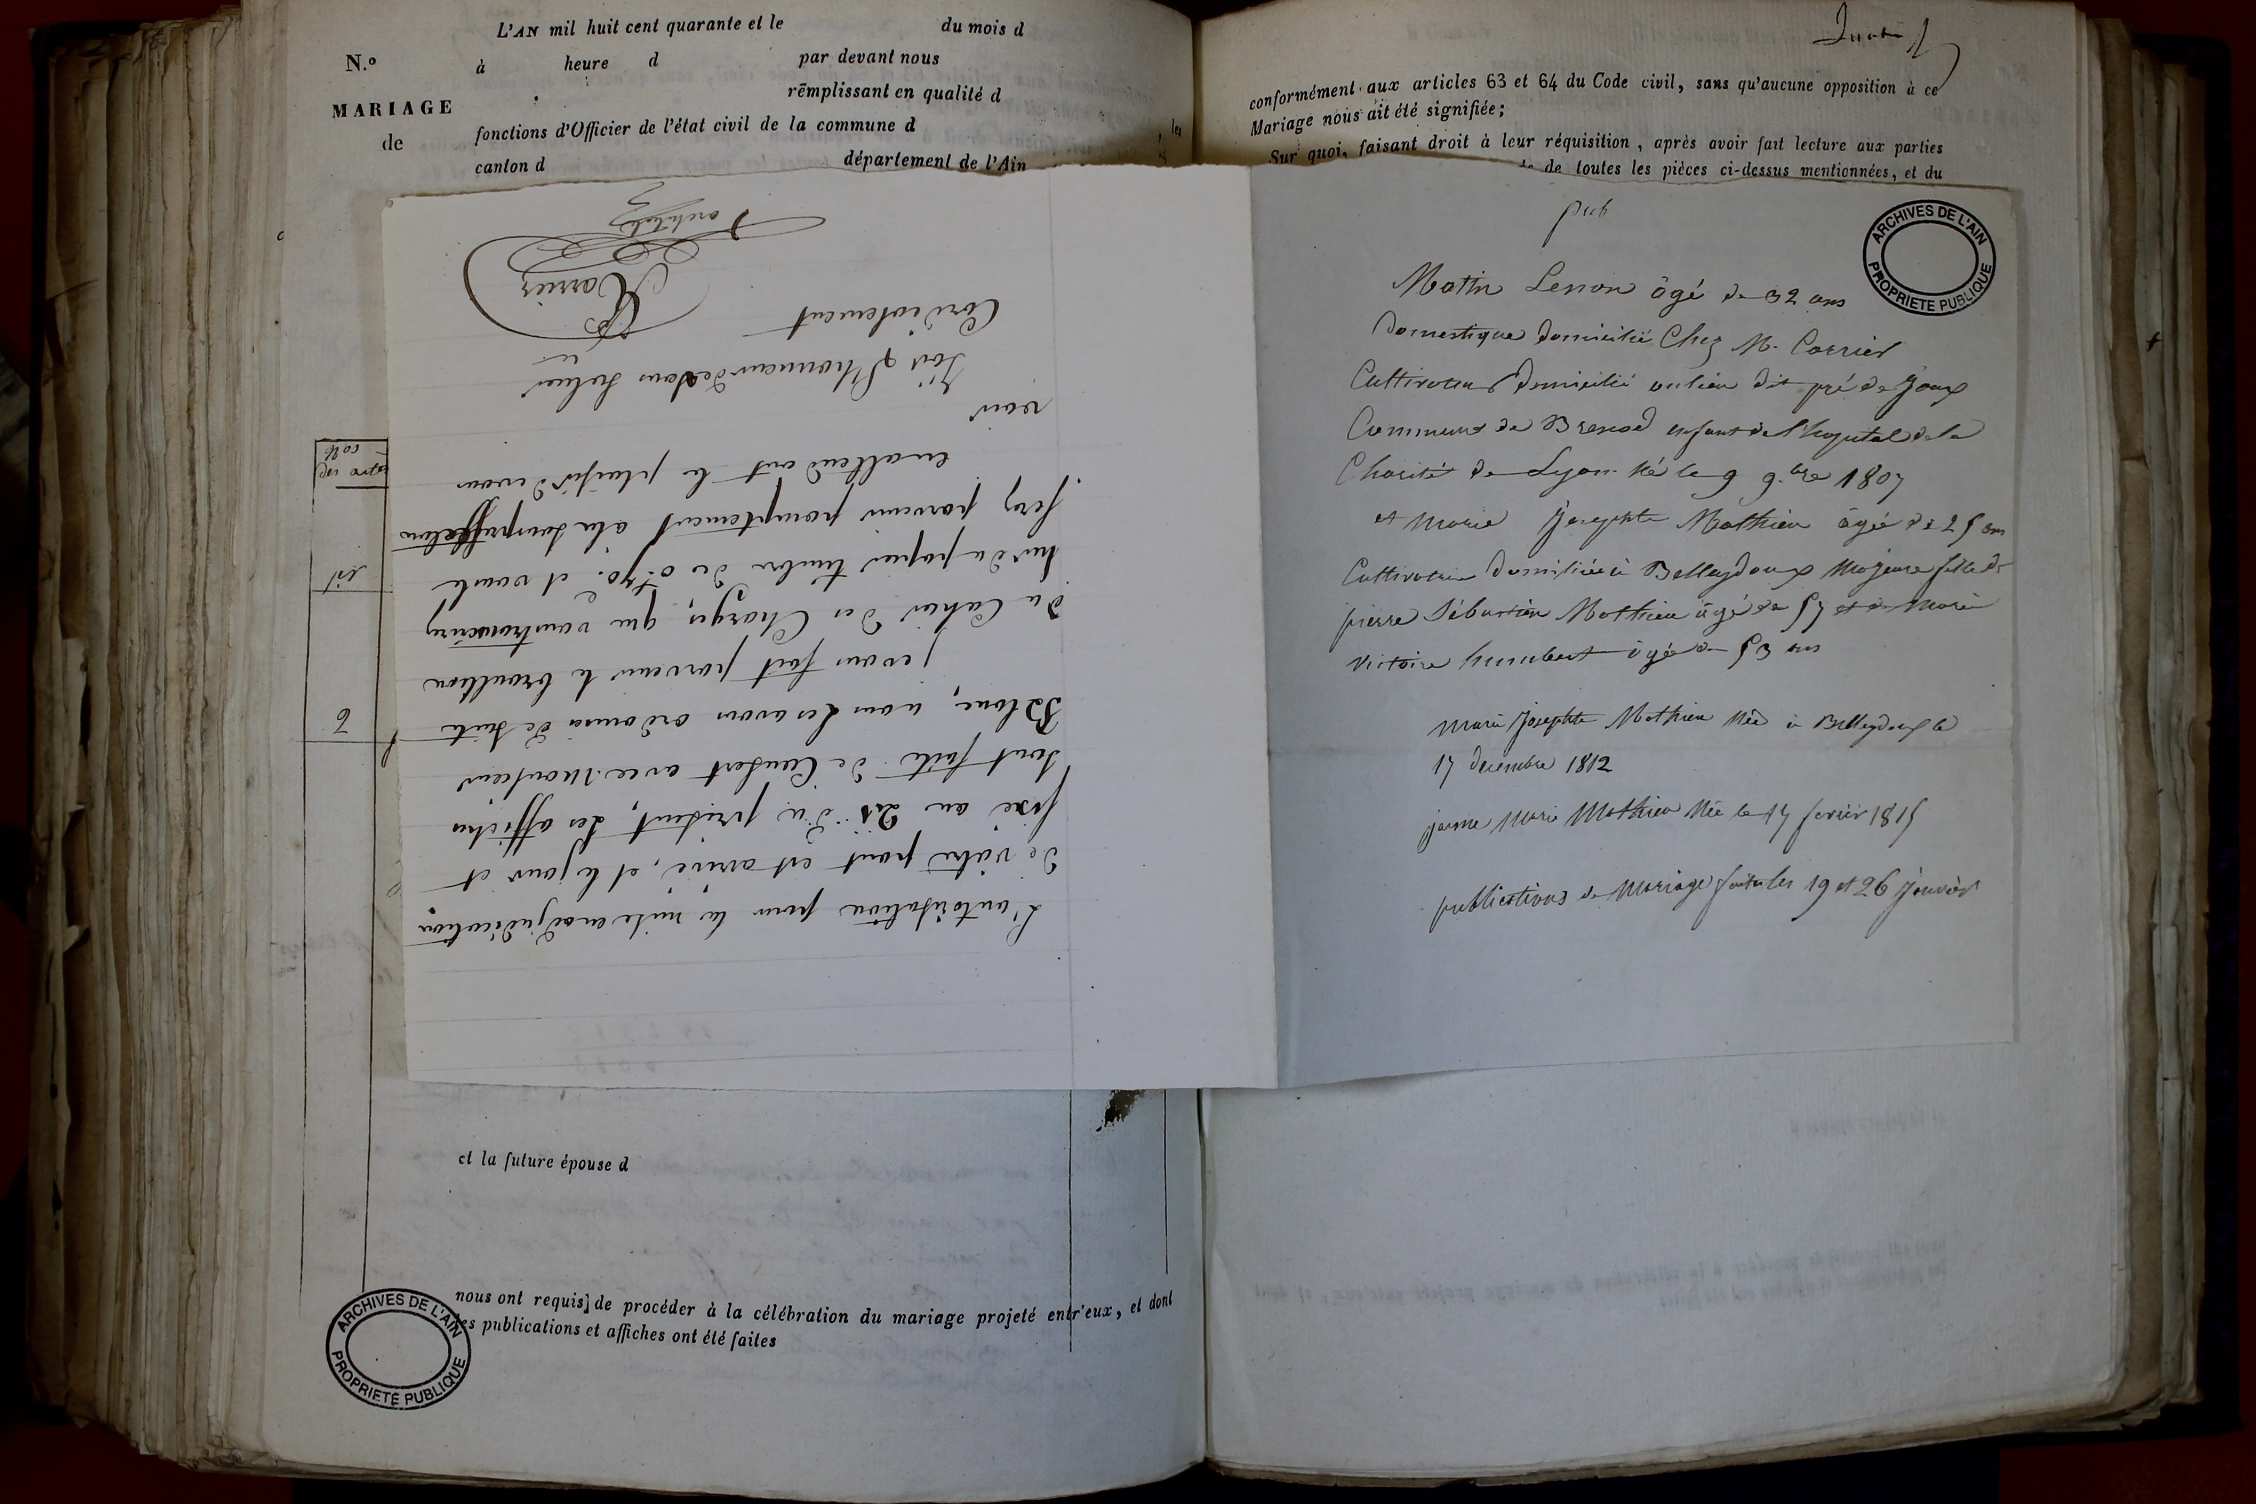 L'AN mil huit cent quarante et le du mois d
N.o à heure d par devant nous
remplissant en qualité d
MARIAGE
de
fonctions d'Officier de l'état civil de la commune d , les
canton d département de l'Ain
L'autorisation pour la mise en adjudication
de vôtre pont est arrivé, et le jour est
fixé au 25 du présent, les affiches
sont faite de Consert avec Monsieur
Blanc, nous les avons ordonné de suite
je vous fait parvenir le brouillon
du Cahier des Charges, que vous transcrirez
sur du papier timbré de 0f 70c. et vous le
ferez parvenir promptement à la souspréfecture
en attendant le plaisir de vous
voir
J'ai l'honneur de vous saluer
Cordialement
Carrier
6
et la future épouse d
nous ont requis de procéder à la célébration du mariage projeté entr'eux, et dont
les publications et affiches ont été faites
ARCHIVES DE L'AIN
PROPRIETE PUBLIQUE
conformément aux articles 63 et 64 du Code civil, sans qu'aucune opposition à ce
Mariage nous ait été signifiée;
Sur quoi, faisant droit à leur réquisition, après avoir fait lecture aux parties
de toutes les pièces ci-dessus mentionnées, et du
pub
ARCHIVES DE L'AIN
PROPRIETE PUBLIQUE
Matin Lenon âgé de 32 ans
domestique domicilié Chez M. Carrier
Cultivateur domicilié au lieu dit pré de Joux
Commune de Brenod enfant de l'hopital de la
Charité de Lyon Né le 9 9.bre 1807
et Marie Josephte Mathieu âgée de 25 ans
Cultivatrice domiciliée à Belleydoux Majeure fille de
pierre Sébastien Mathieu âgé de 57 et de Marie
Victoire humbert âgée de 53 ans
Marie Josephte Mathieu Née à Belleydoux le
17 decembre 1812
jeanne Marie Mathieu Née le 17 fevrier 1815
publications de Mariage faites les 19 et 26 Janvier